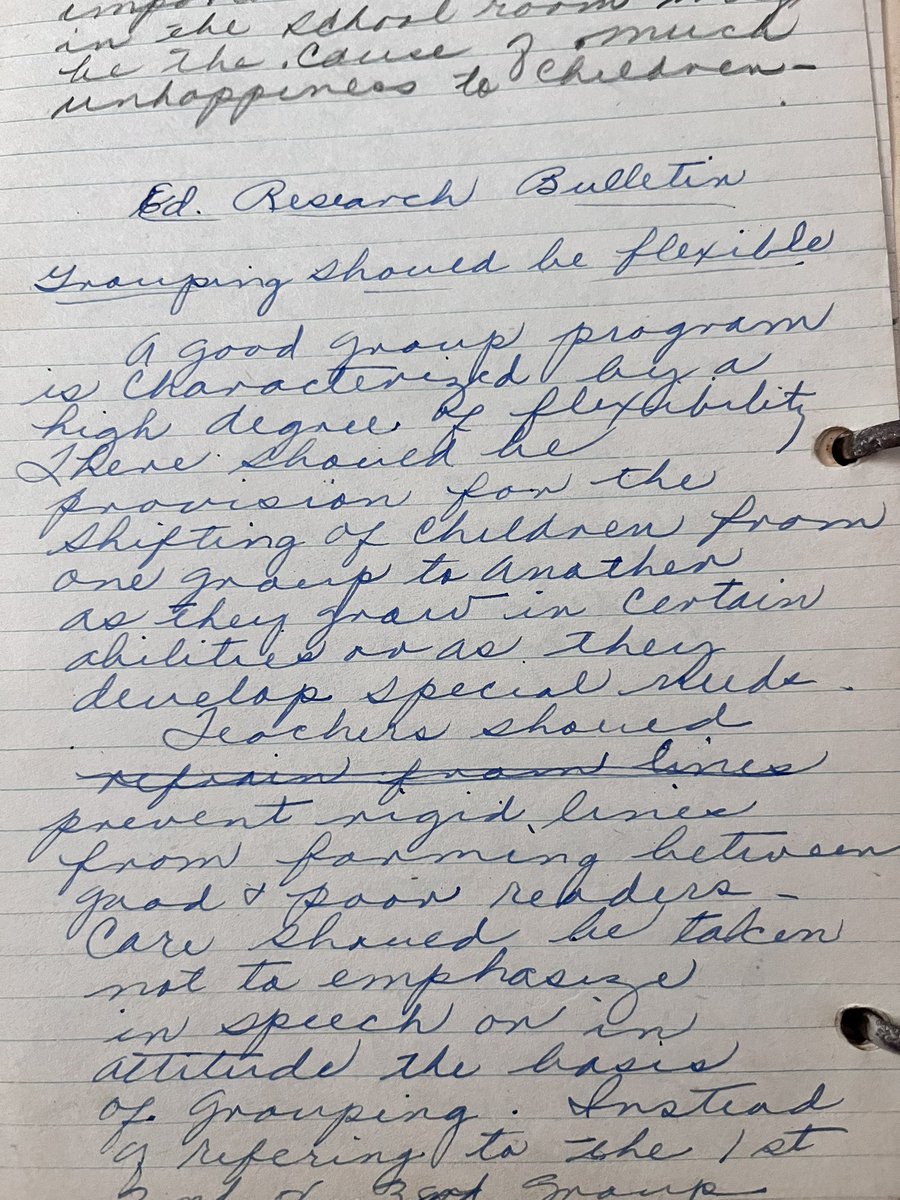 in the school room may
be the cause of much
unhappiness to children -
Ed. Research Bulletin
Grouping should be flexible
A good group program
is characterized by a
high degree of flexibility,
There should be
provision for the
shifting of children from
one group to another
as they grow in certain
abilities or as they
develop special needs.
Teachers should
refrain from lines
prevent rigid lines
from forming between
good & poor readers -
Care should be taken
not to emphasize
in speech or in
attitude the basis
of grouping. Instead
of refering to the 1st
2nd or 3rd group